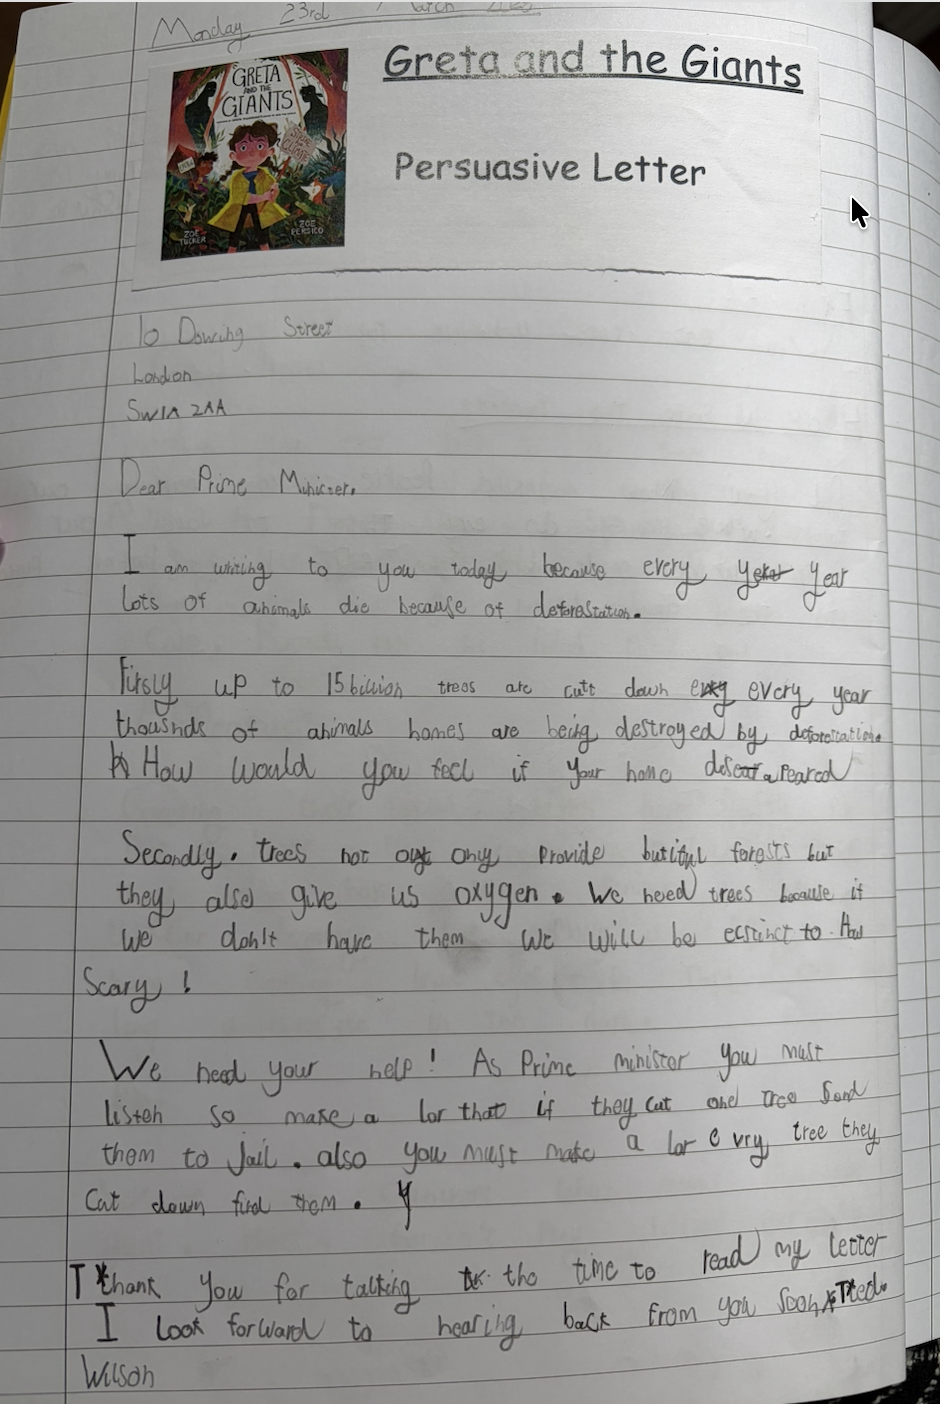 Monday 23rd March
GRETA
AND THE
GIANTS
Greta and the Giants
ZOË
TUCKER
ZOE
PERSICO
Persuasive Letter
10 Dowing Street
London
SW1A 2AA
Dear Prime Minister,
I am writing to you today because every year
lots of animals die because of deforestation.
Firsly up to 15 billion trees are cutt down every year
thousnds of animals homes are being destroyed by deforestation.
How would you feel if your home
Secondly, trees not only provide butiful forests but
they also give us oxygen. We need trees because if
we don't have them we will be ecstinct to. How
Scary!
We need your help! As Prime minister you must
listen so make a lor that if they cut one tree send
them to Jail. also you must make a lor evry tree they
cut down find them.
Thank you for talking the time to read my letter
I look forward to hearing back from you soon Ted.
Wilson